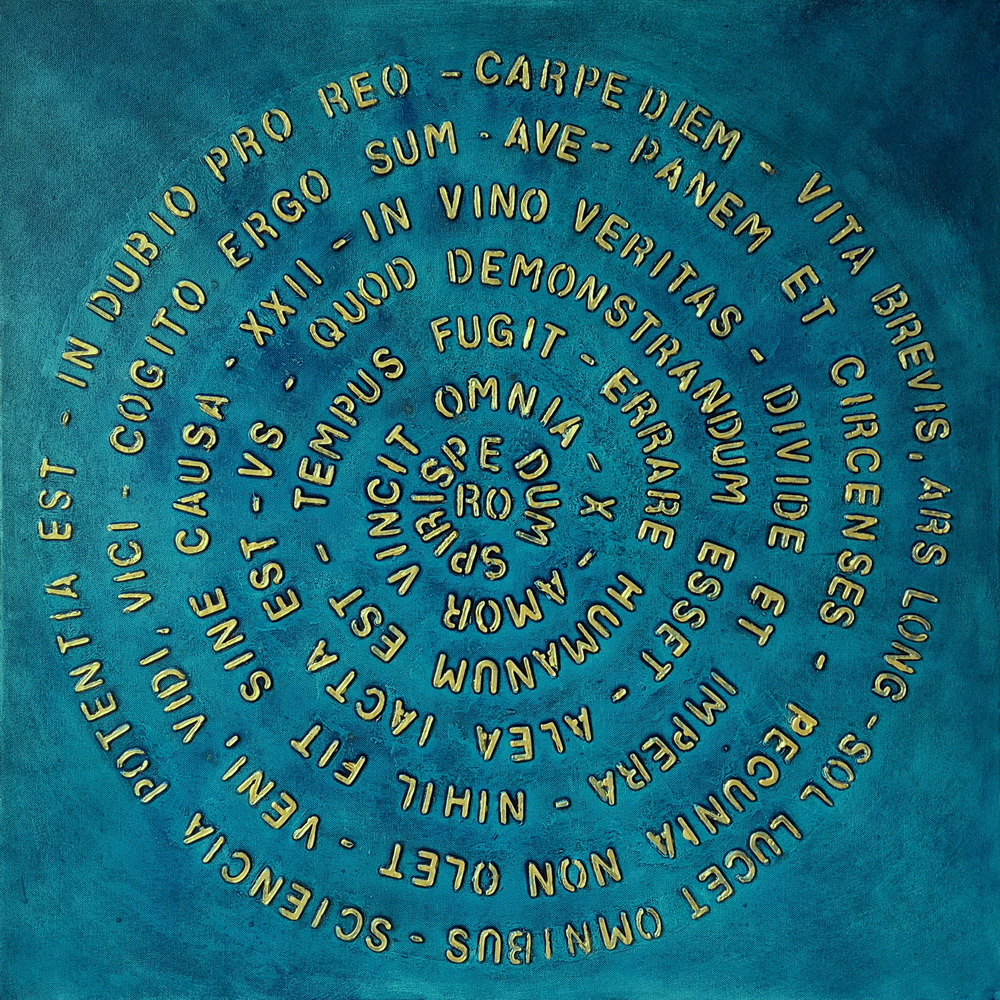 CARPE DIEM - VITA BREVIS, ARS LONG - SOL LUCET OMNIBUS - SCIENCIA POTENTIA EST - IN DUBIO PRO REO -
AVE - PANEM ET CIRCENSES - PECUNIA NON OLET - VENI, VIDI, VICI - COGITO ERGO SUM -
IN VINO VERITAS - DIVIDE ET IMPERA - NIHIL FIT SINE CAUSA - XXII -
QUOD DEMONSTRANDUM ESSET - ALEA IACTA EST - VS -
TEMPUS FUGIT - ERRARE HUMANUM EST
AMOR VINCIT OMNIA - X -
DUM SPIRISPE
RO